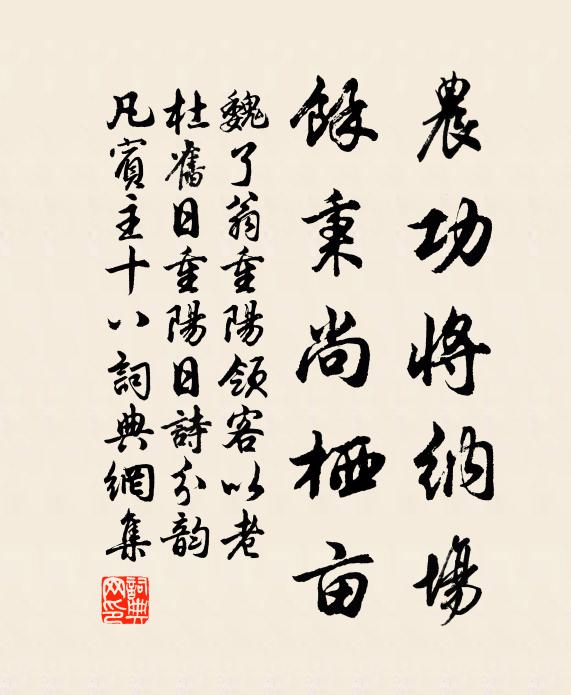 農功將納場
餘秉尚栖亩
魏了翁重陽領客以老
杜舊日重陽日詩分韵
凡賓主十八詞典網集
詞典
网印